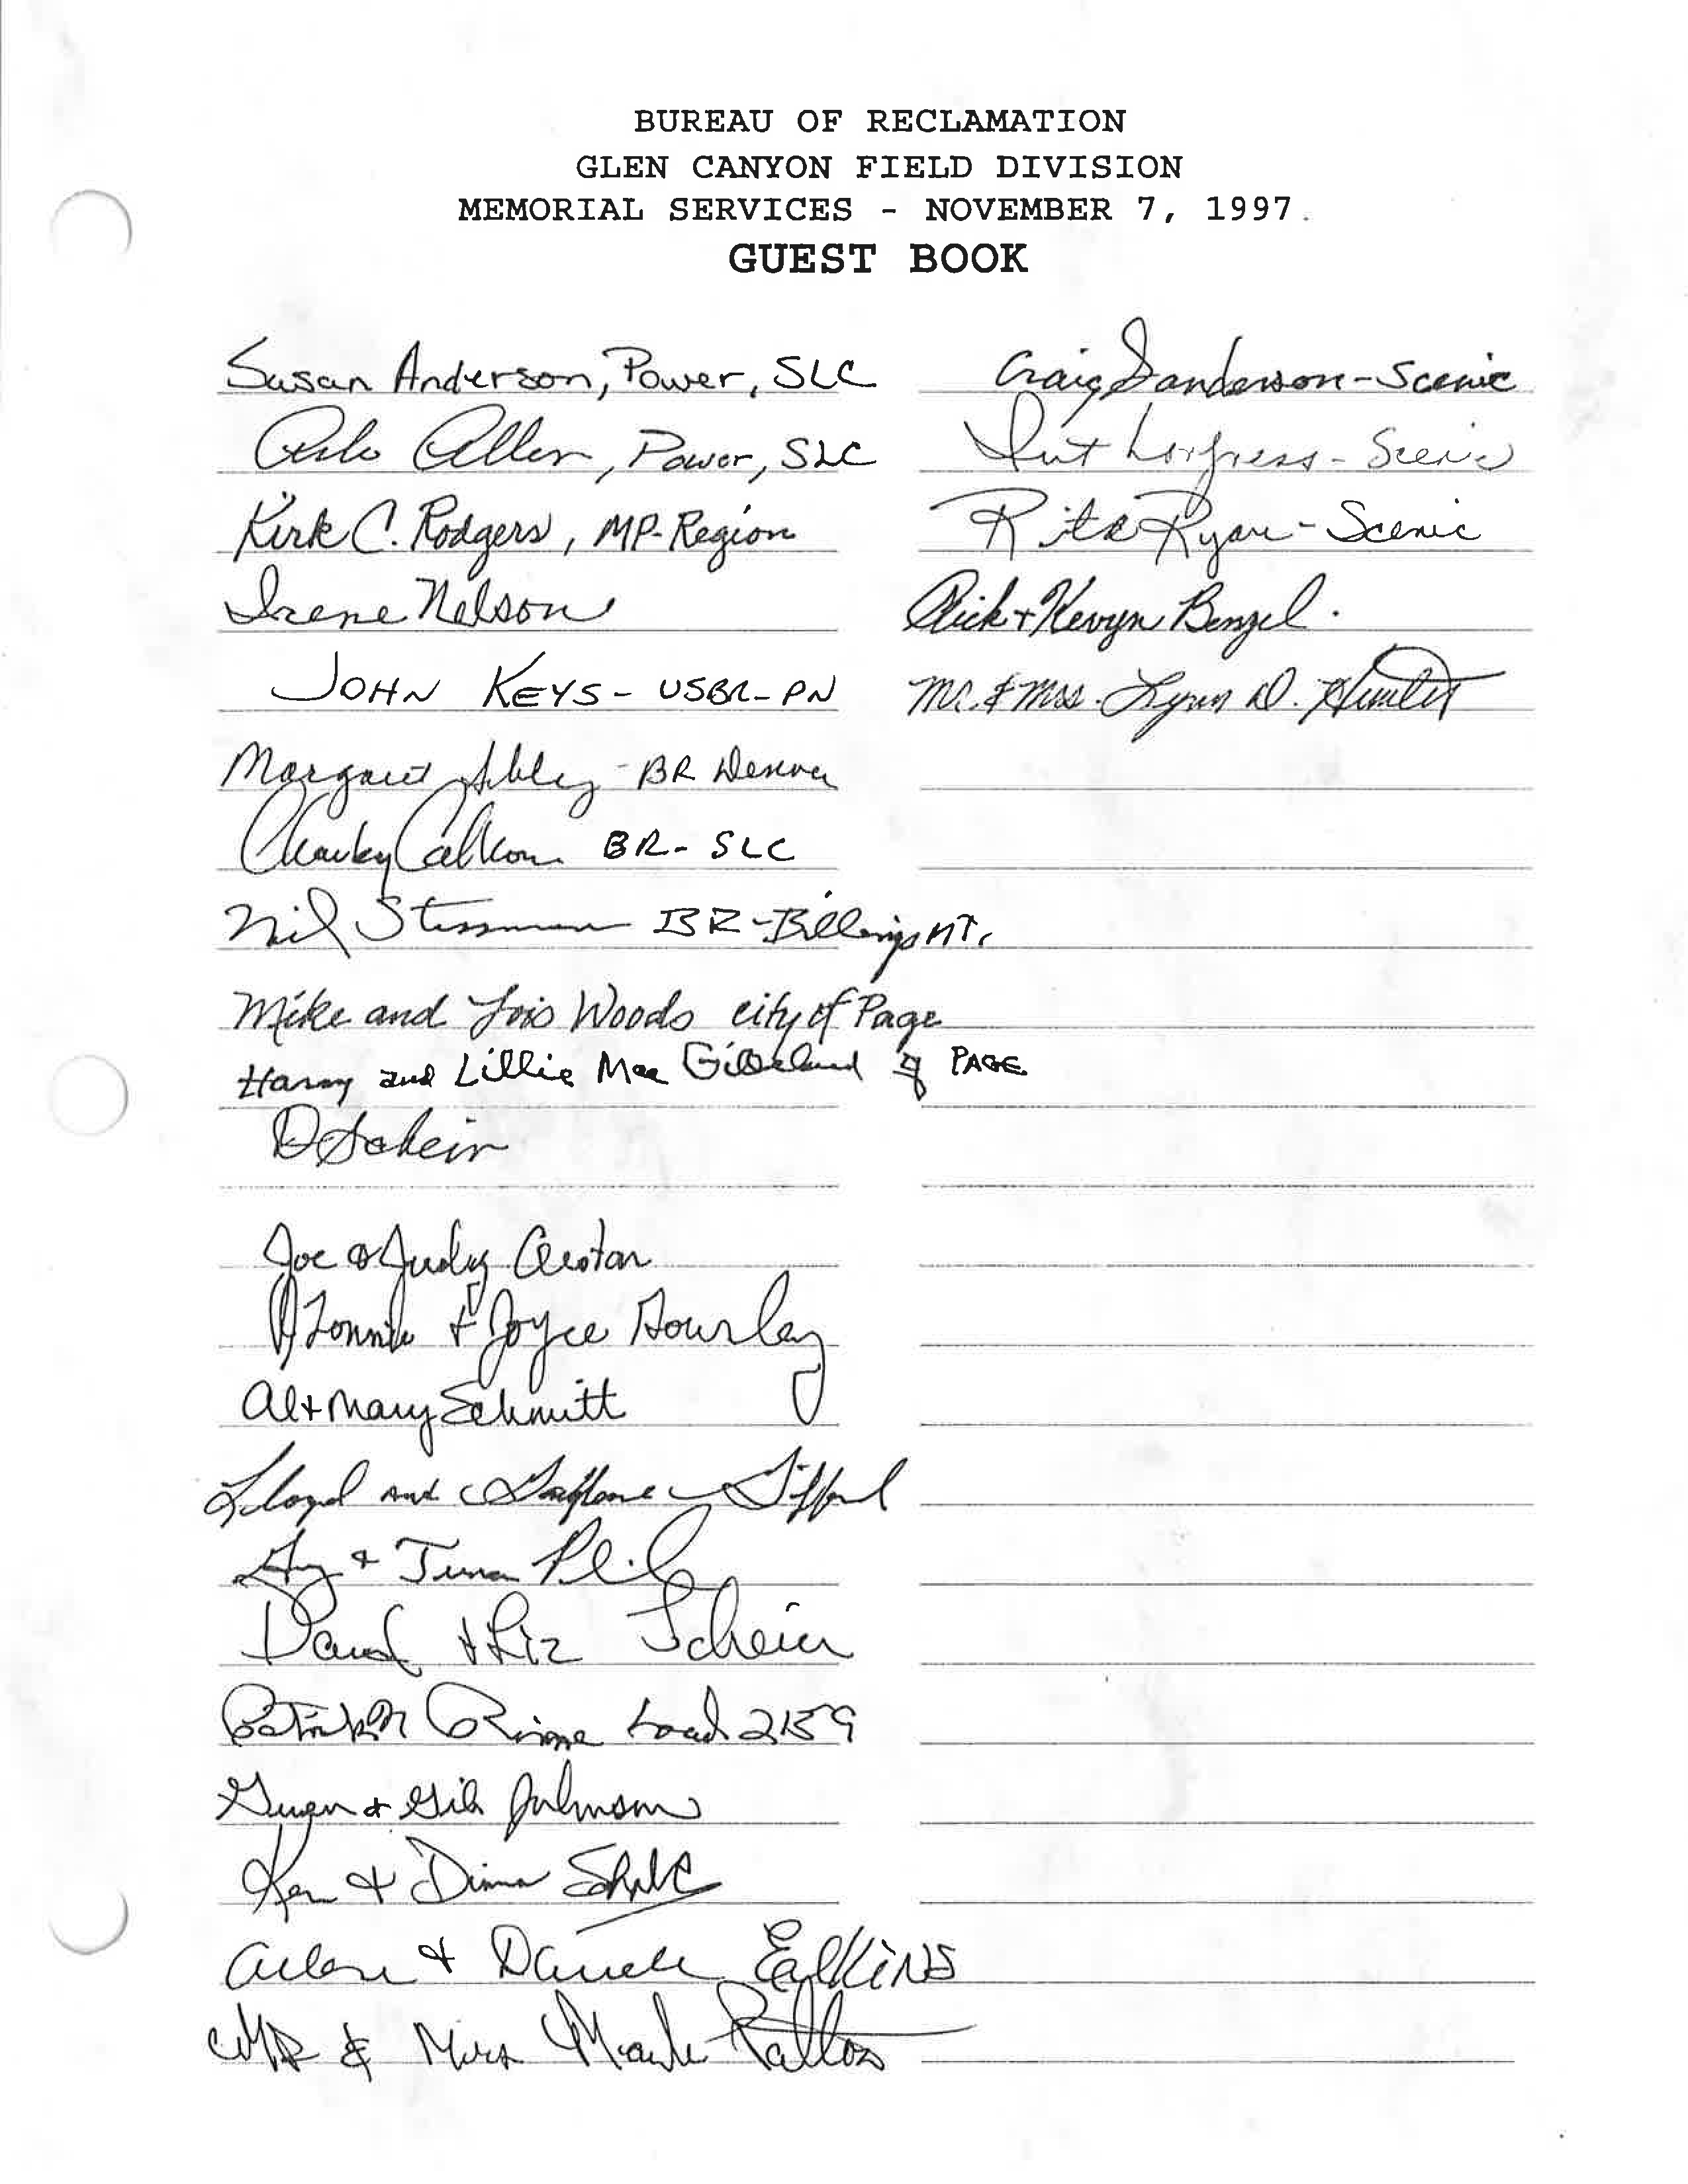 BUREAU OF RECLAMATION
GLEN CANYON FIELD DIVISION
MEMORIAL SERVICES - NOVEMBER 7, 1997
GUEST BOOK
Susan Anderson, Power, SLC
Allen, Power, SLC
Kirk C. Rodgers, MP-Region
Irene Nelson
JOHN KEYS - USBR-PN
Margaret Sibley - BR Denver
Charley Calhoun BR- SLC
Neil Stessman BR-Billings MT.
Mike and Lois Woods city of Page
Harry and Lillie Mae Gilleland of PAGE
D Schein
Joe & Judy
Lonnie & Joyce Gourley
Al + Mary Schmitt
Lloyd and
& Tina
David & Liz Schein
2159
Gwen & Gib Johnson
Ken &
Arlene &
MR & Mrs Mark
Craig Sanderson - Scenic
- Scenic
Rita Ryan - Scenic
Rick + Kevyn Benzel.
Mr. & Mrs. Lynn D.